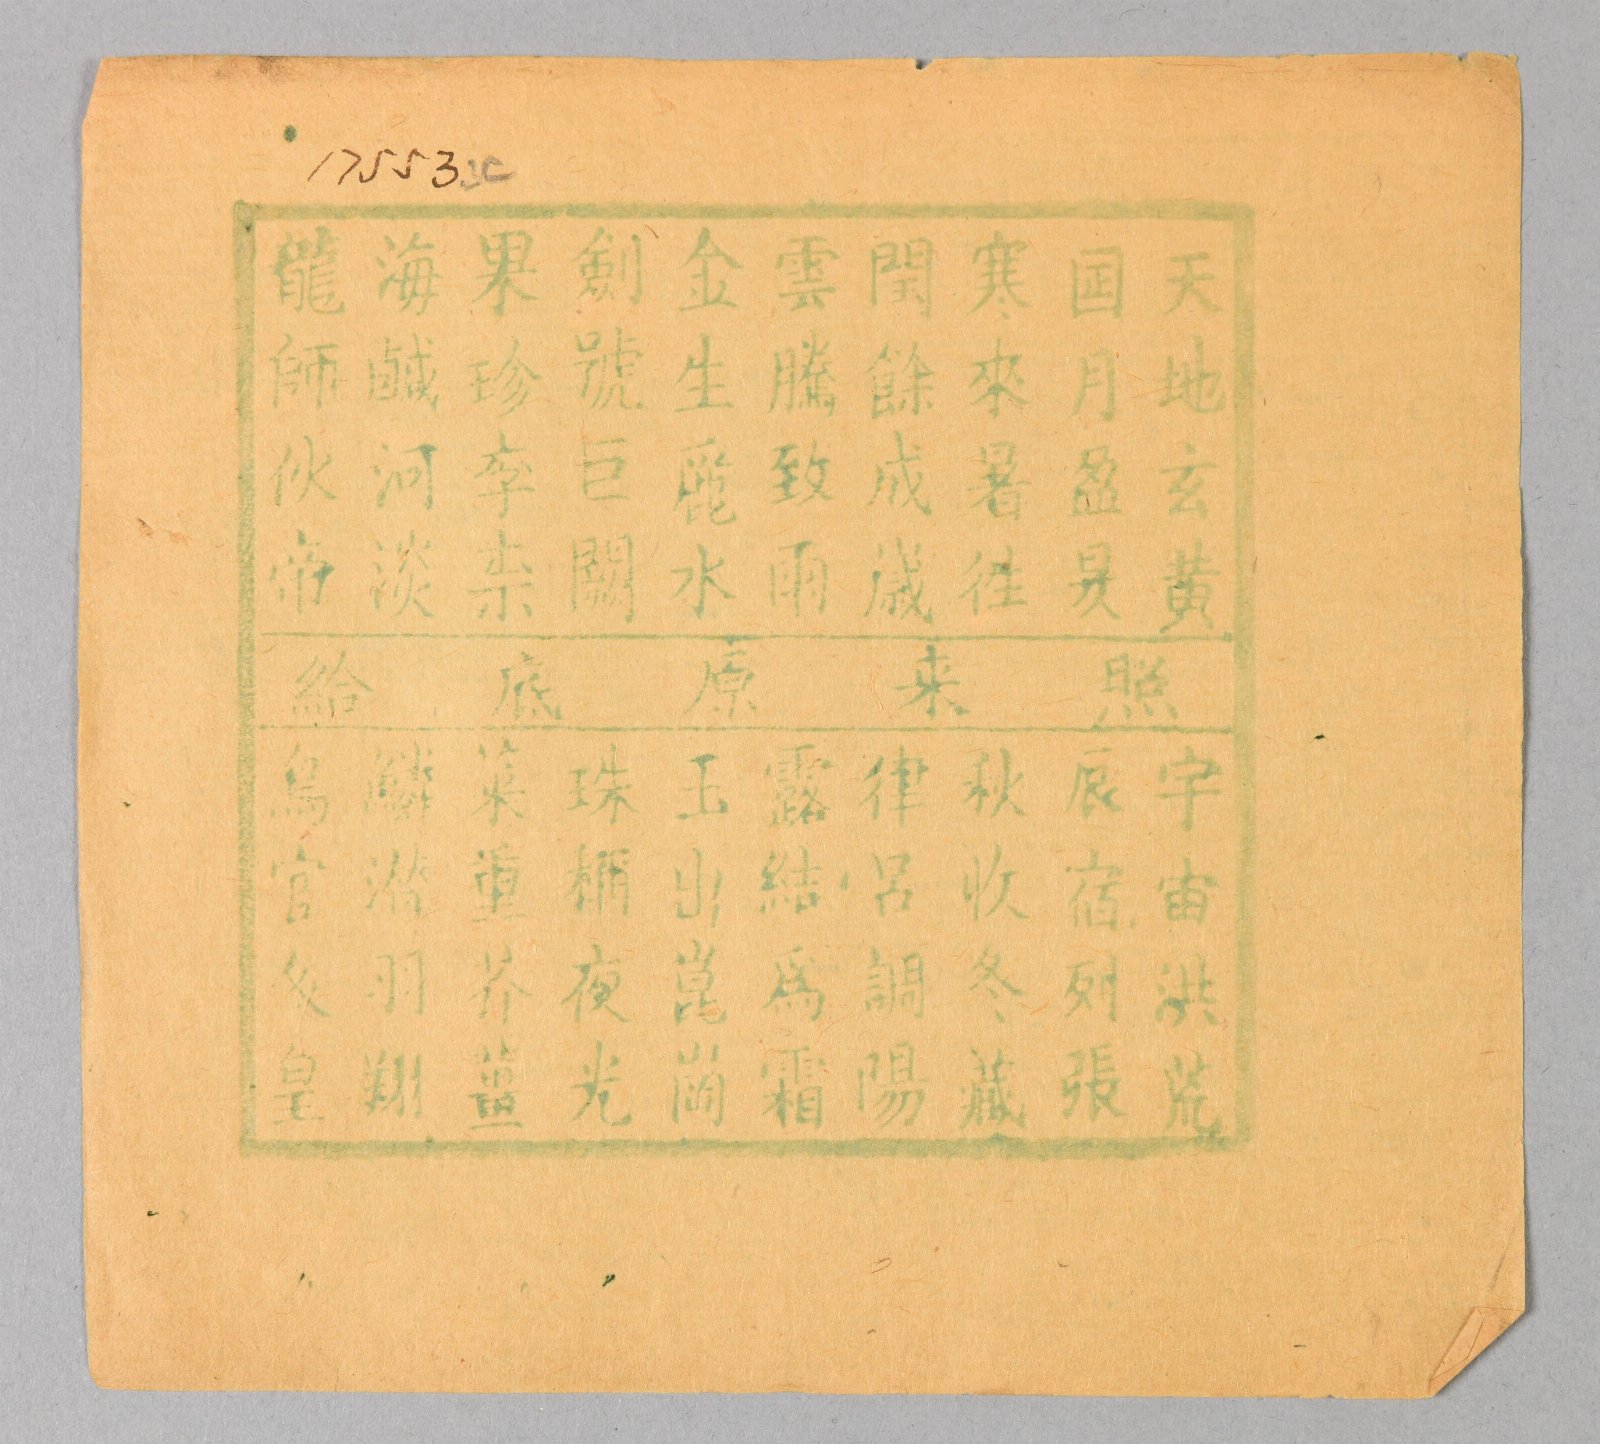 17553
天地玄黃
囸月盈昃
寒來暑徃
閏餘成歲
雲騰致雨
金生麗水
劍號巨闕
果珍李柰
海鹹河淡
龍師伙帝
照来原底給
宇宙洪荒
辰宿列張
秋收冬藏
律呂調陽
露結為霜
玉出崑崗
珠稱夜光
菜重芥薑
鱗潛羽翔
鳥官皇